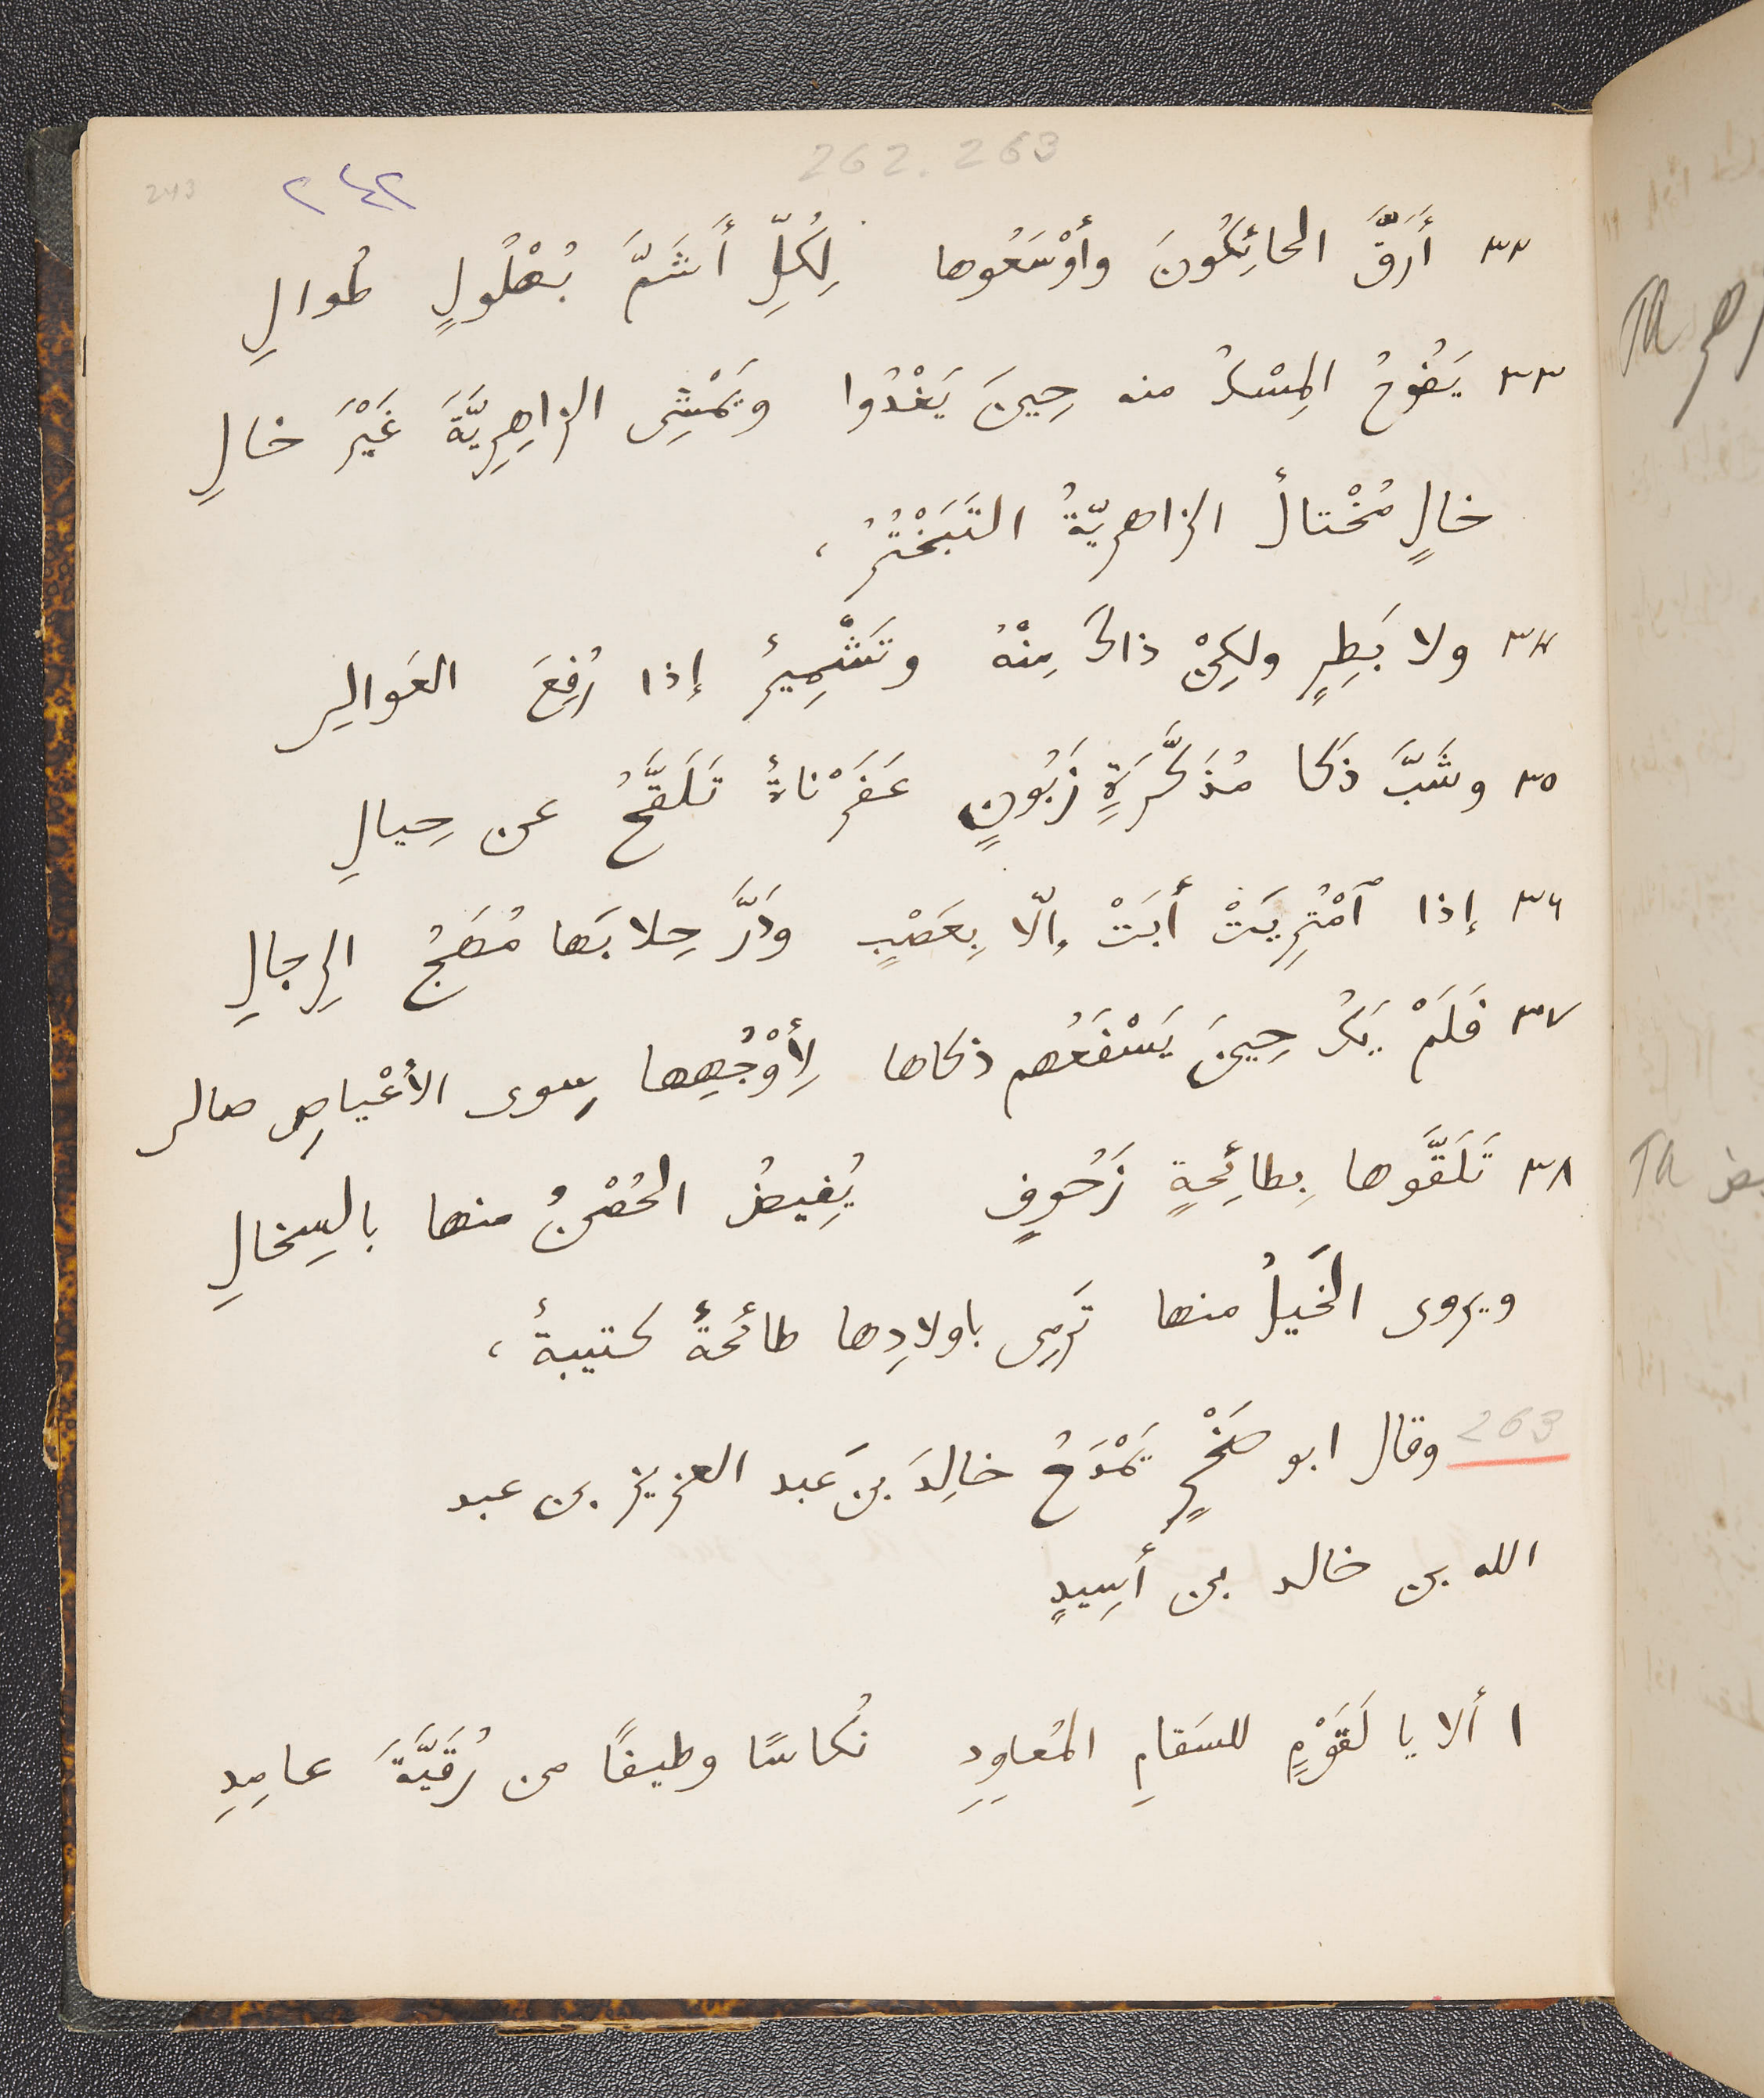 262. 263
243 ٢٤٢
٣٢ أَرَقَّ الحائِكُونَ وأَوْسَعُوها لِكُلِّ أَشَمَّ بُهْلُولٍ طُوالِ
٣٣ يَفُوحُ المِسْكُ منه حِينَ يَغْدُوا ويَمْشِى الزاهِرِيَّةَ غَيْرَ خالِ
خالٍ مُخْتالٌ الزاهريّةُ التَبَخْتُرُ ،
٣٤ ولا بَطِرٍ ولكِنْ ذاكَ مِنْهُ وتَشْمِيرٌ إذا رُفِعَ العَوالِى
٣٥ وشَبَّ ذَكا مُذَكَّرَةٍ زَبُونٍ عَفَرْناةٌ تَلَقَّحُ عن حِيالِ
٣٦ إذا ٱمْتُرِيَتْ أَبَتْ إلّا بِعَصْبٍ ودَرَّ حِلابَها مُهَجُ الرِجالِ
٣٧ فَلَمْ يَكُ حِينَ يَسْفَعُهم ذكاها لِأَوْجُهِها سِوى الأَعْياصِ صالى
٣٨ تَلَقَّوها بِطائِحةٍ زَحُوفٍ يُفِيضُ الحُصْنُ منها بالسِخالِ
ويروى الخَيلُ منها تَرمِى باولادِها طائحةٌ كتيبةٌ ،
263 وقال ابو صَخْرٍ يَمْدَحُ خالِدَ بنَ عَبد العزيز بن عبد
الله بن خالد بن أَسِيدٍ
١ ألا يا لَقَوْمٍ للسَقامِ المُعاوِدِ نُكاسًا وطيفًا من رُقَيَّةَ عامِدِ
TA
TA